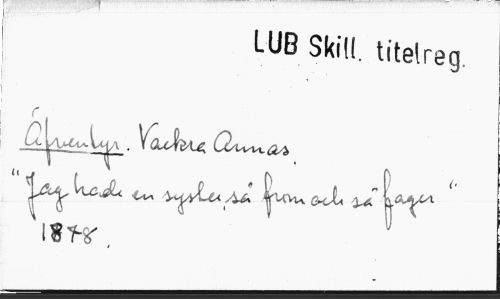 LUB Skill. titelreg.
Äfventyr. Vackra Annas.
"Jag hade en syster, så from och så fager"
1878.